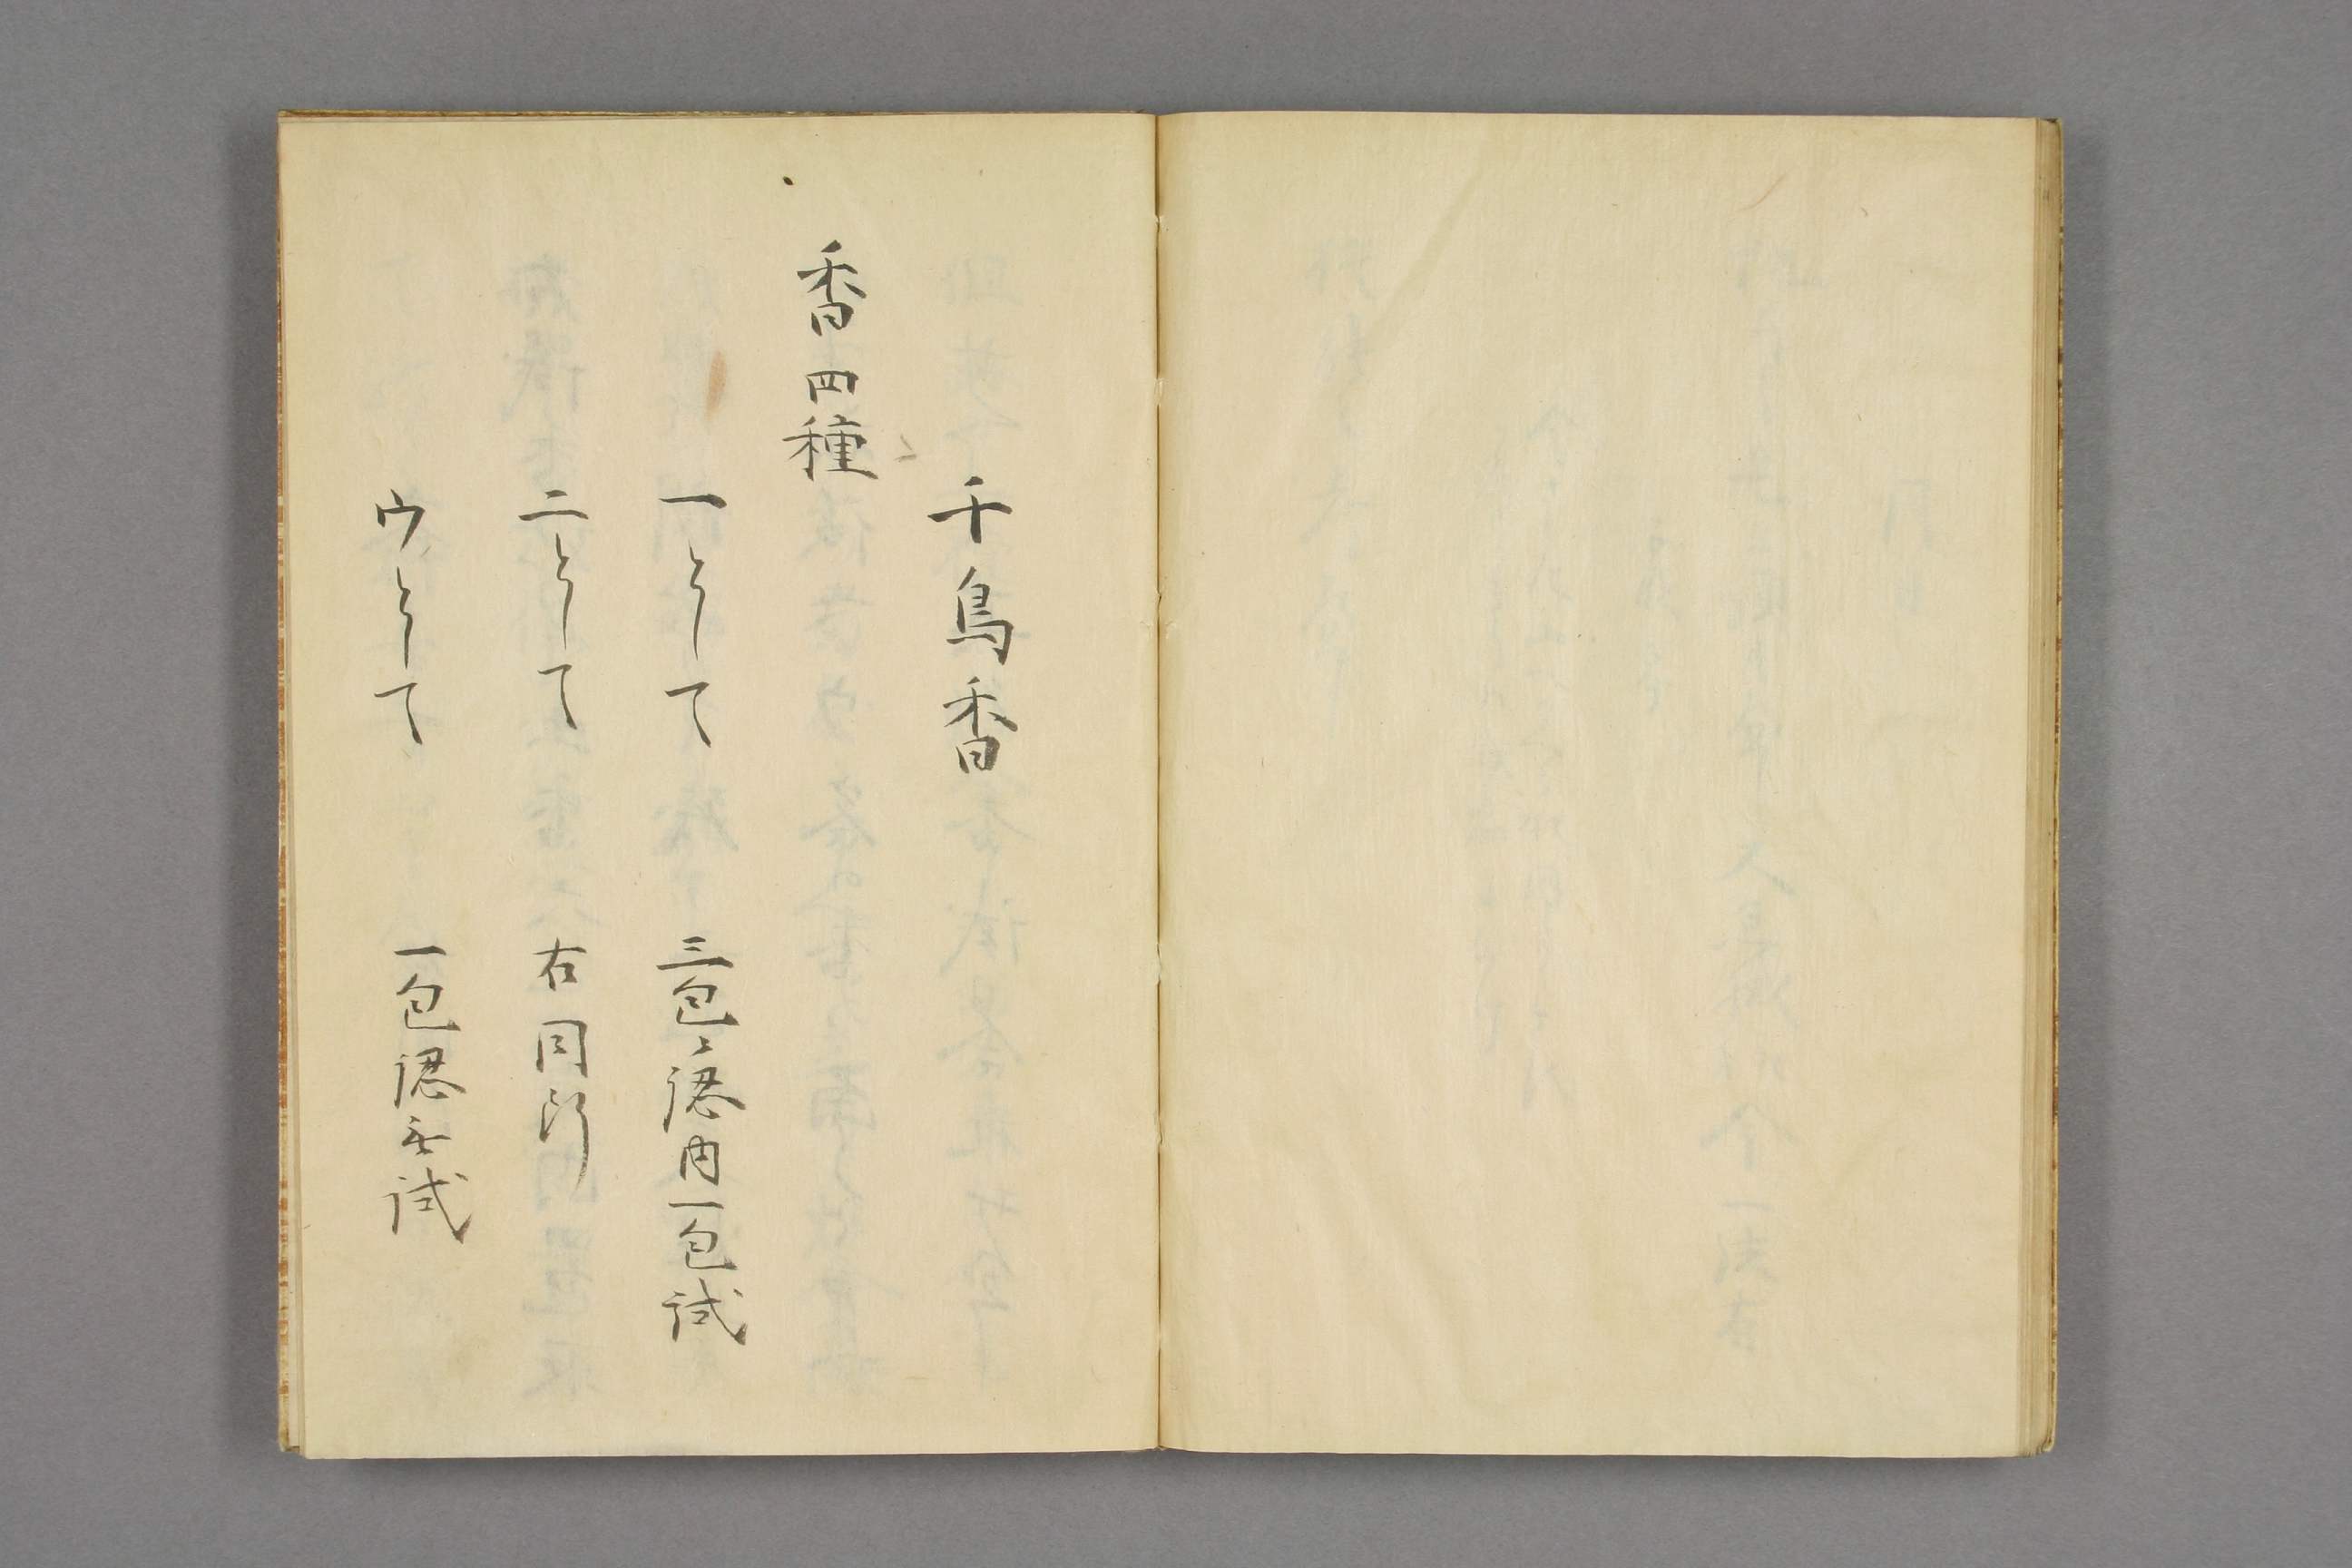 千鳥香
香四種
一として 三包ニ認内一包試
二として 右同断
ウとして 一包認無試